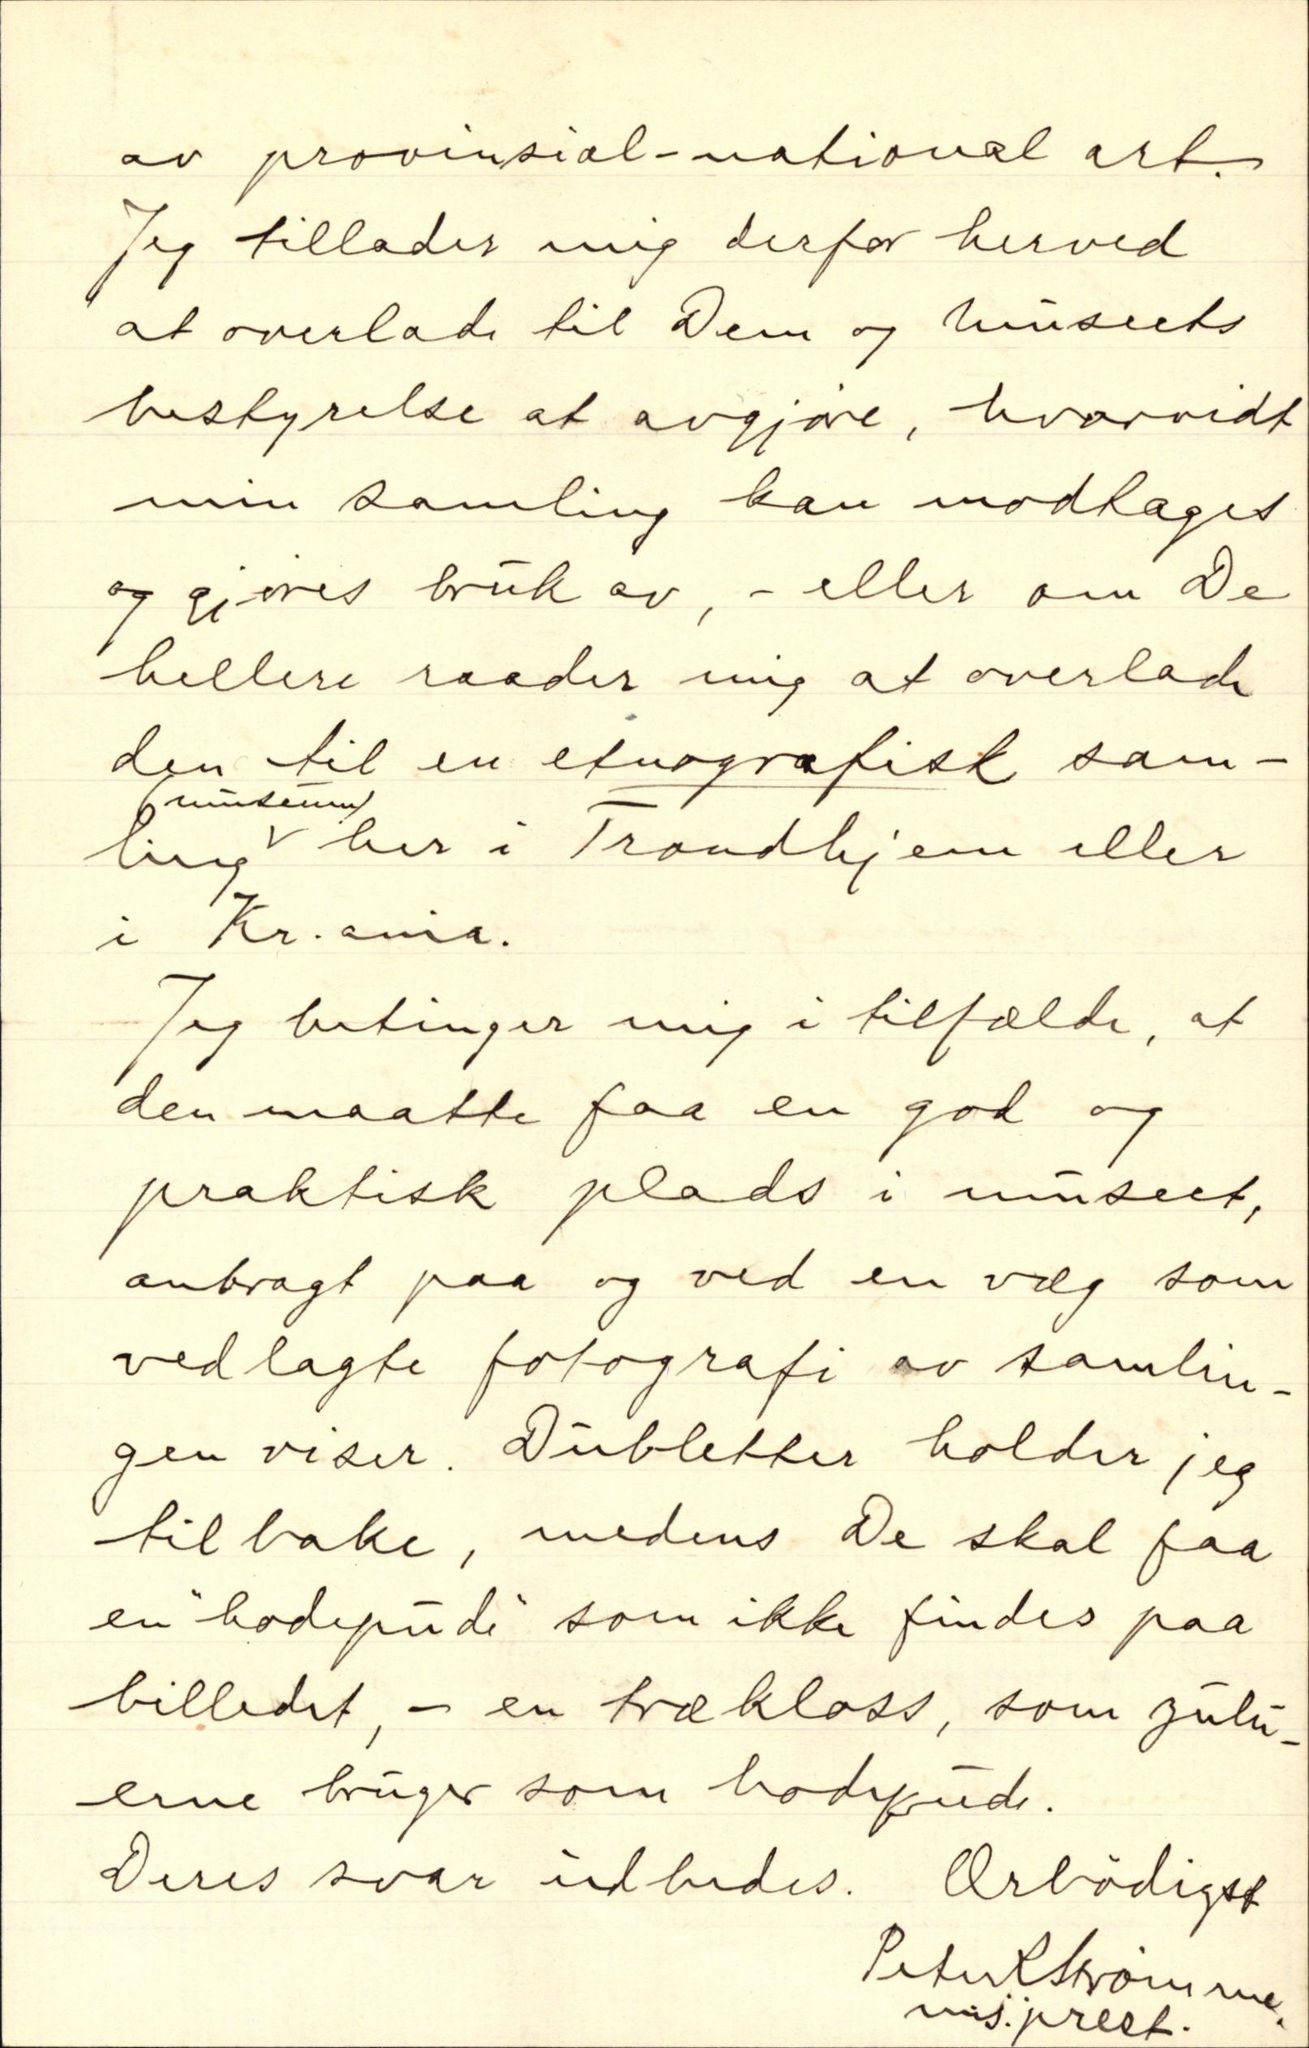 av provinsial-national art.
Jeg tillader mig derfor herved
at overlade til Dem og Museets
bestyrelse at avgjøre, hvorvidt
min samling kan modtages
og gjøres bruk av, - eller om De
hellere raader mig at overlade
den til en etnografisk sam-
(museum)
ling her i Trondhjem eller
i Kr.ania.
Jeg betinger mig i tilfælde, at
den maatte faa en god og
praktisk plads i museet,
anbragt paa og ved en væg som
vedlagte fotografi av samlin-
gen viser. Dubletter holder jeg
tilbake, medens De skal faa
en "hodepude" som ikke findes paa
billedet, - en trækloss, som zulu-
erne bruger som hodepude.
Deres svar udbedes. Ærbödigst
Peter Strømme.
mis.prest.